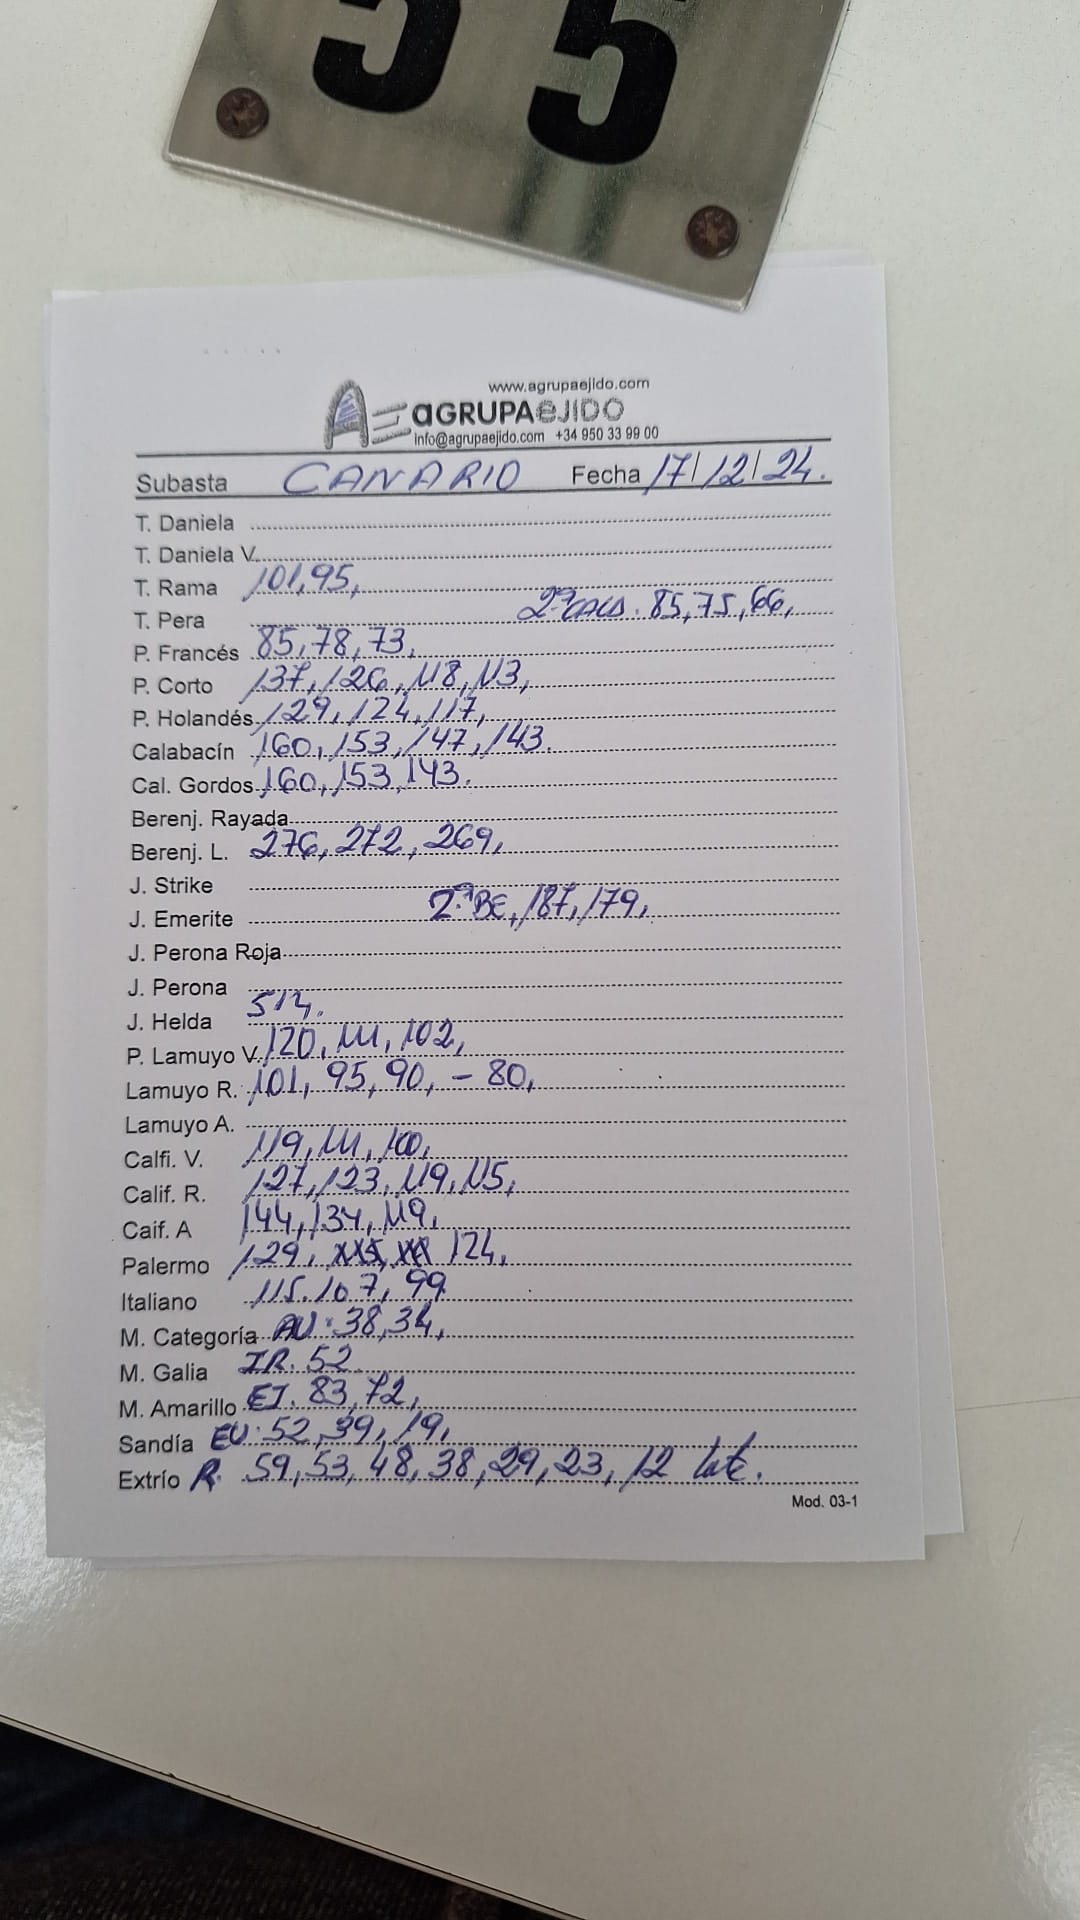 55
www.agrupaejido.com
AGRUPAEJIDO
info@agrupaejido.com +34 950 33 99 00
Subasta CANARIO Fecha 17/12/24.
T. Daniela
T. Daniela V.
T. Rama 101, 95,
T. Pera 2ª CALD. 85, 75, 66,
P. Francés 85, 78, 73,
P. Corto 137, 126, 118, 113,
P. Holandés 129, 124, 117,
Calabacín 160, 153, 147, 143.
Cal. Gordos 160, 153, 143.
Berenj. Rayada
Berenj. L. 276, 272, 269,
J. Strike
J. Emerite 2ª BE, 187, 179,
J. Perona Roja
J. Perona
J. Helda 514.
P. Lamuyo V. 120, 111, 102,
Lamuyo R. 101, 95, 90, - 80,
Lamuyo A.
Calfi. V. 119, 111, 100,
Calif. R. 127, 123, 119, 115,
Caif. A 144, 134, 119,
Palermo 129, 124,
Italiano 115. 107, 99
M. Categoría AU: 38, 34,
M. Galia IR. 52
M. Amarillo EJ. 83, 72,
Sandía EU: 52, 39, 19,
Extrío R. 59, 53, 48, 38, 29, 23, 12
Mod. 03-1